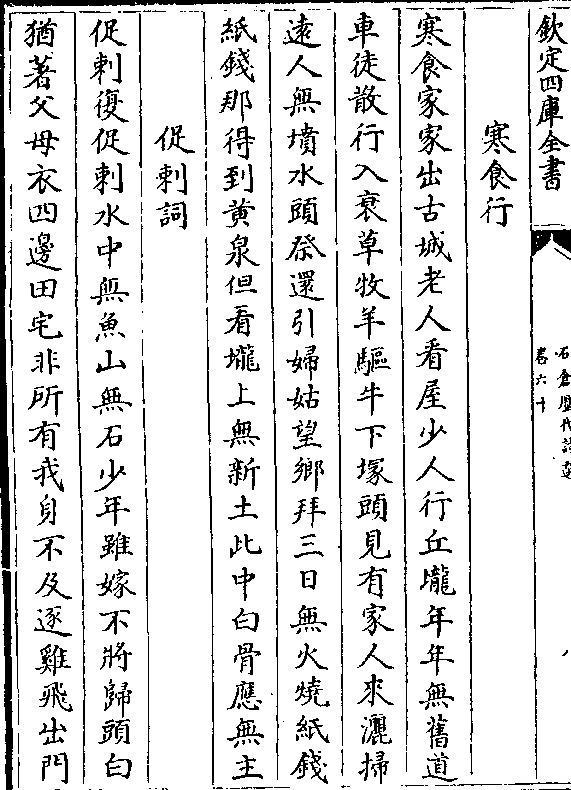 欽定四庫全書
石倉歷代詩選
卷六十
寒食行
寒食家家出古城老人看屋少人行丘壠年年無舊道
車徒散行入衰草牧羊驅牛下塚頭見有家人來灑掃
遠人無墳水頭祭還引婦姑望鄉拜三日無火燒紙錢
紙錢那得到黄泉但看壠上無新土此中白骨應無主
促刺詞
促刺復促刺水中無魚山無石少年雖嫁不將歸頭白
猶著父母衣四邊田宅非所有我身不及逐雞飛出門